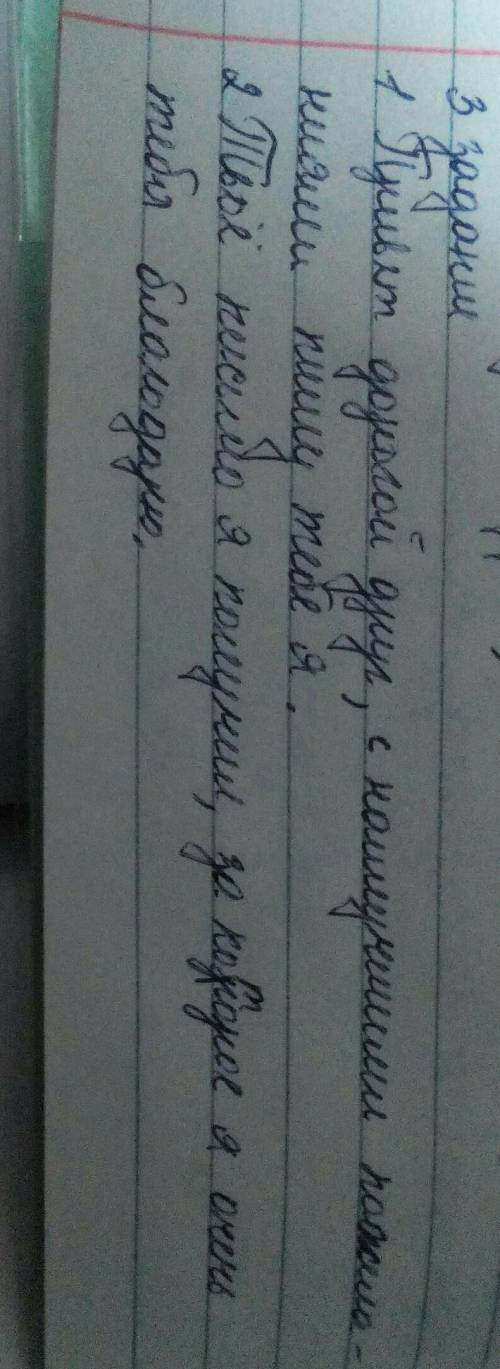 3 задание
1 Привет дорогой друг, с наилучшими пожела-
ниями пишу тебе я.
2 Твоё письмо я получил, за которое я очень
тебя благодарю.